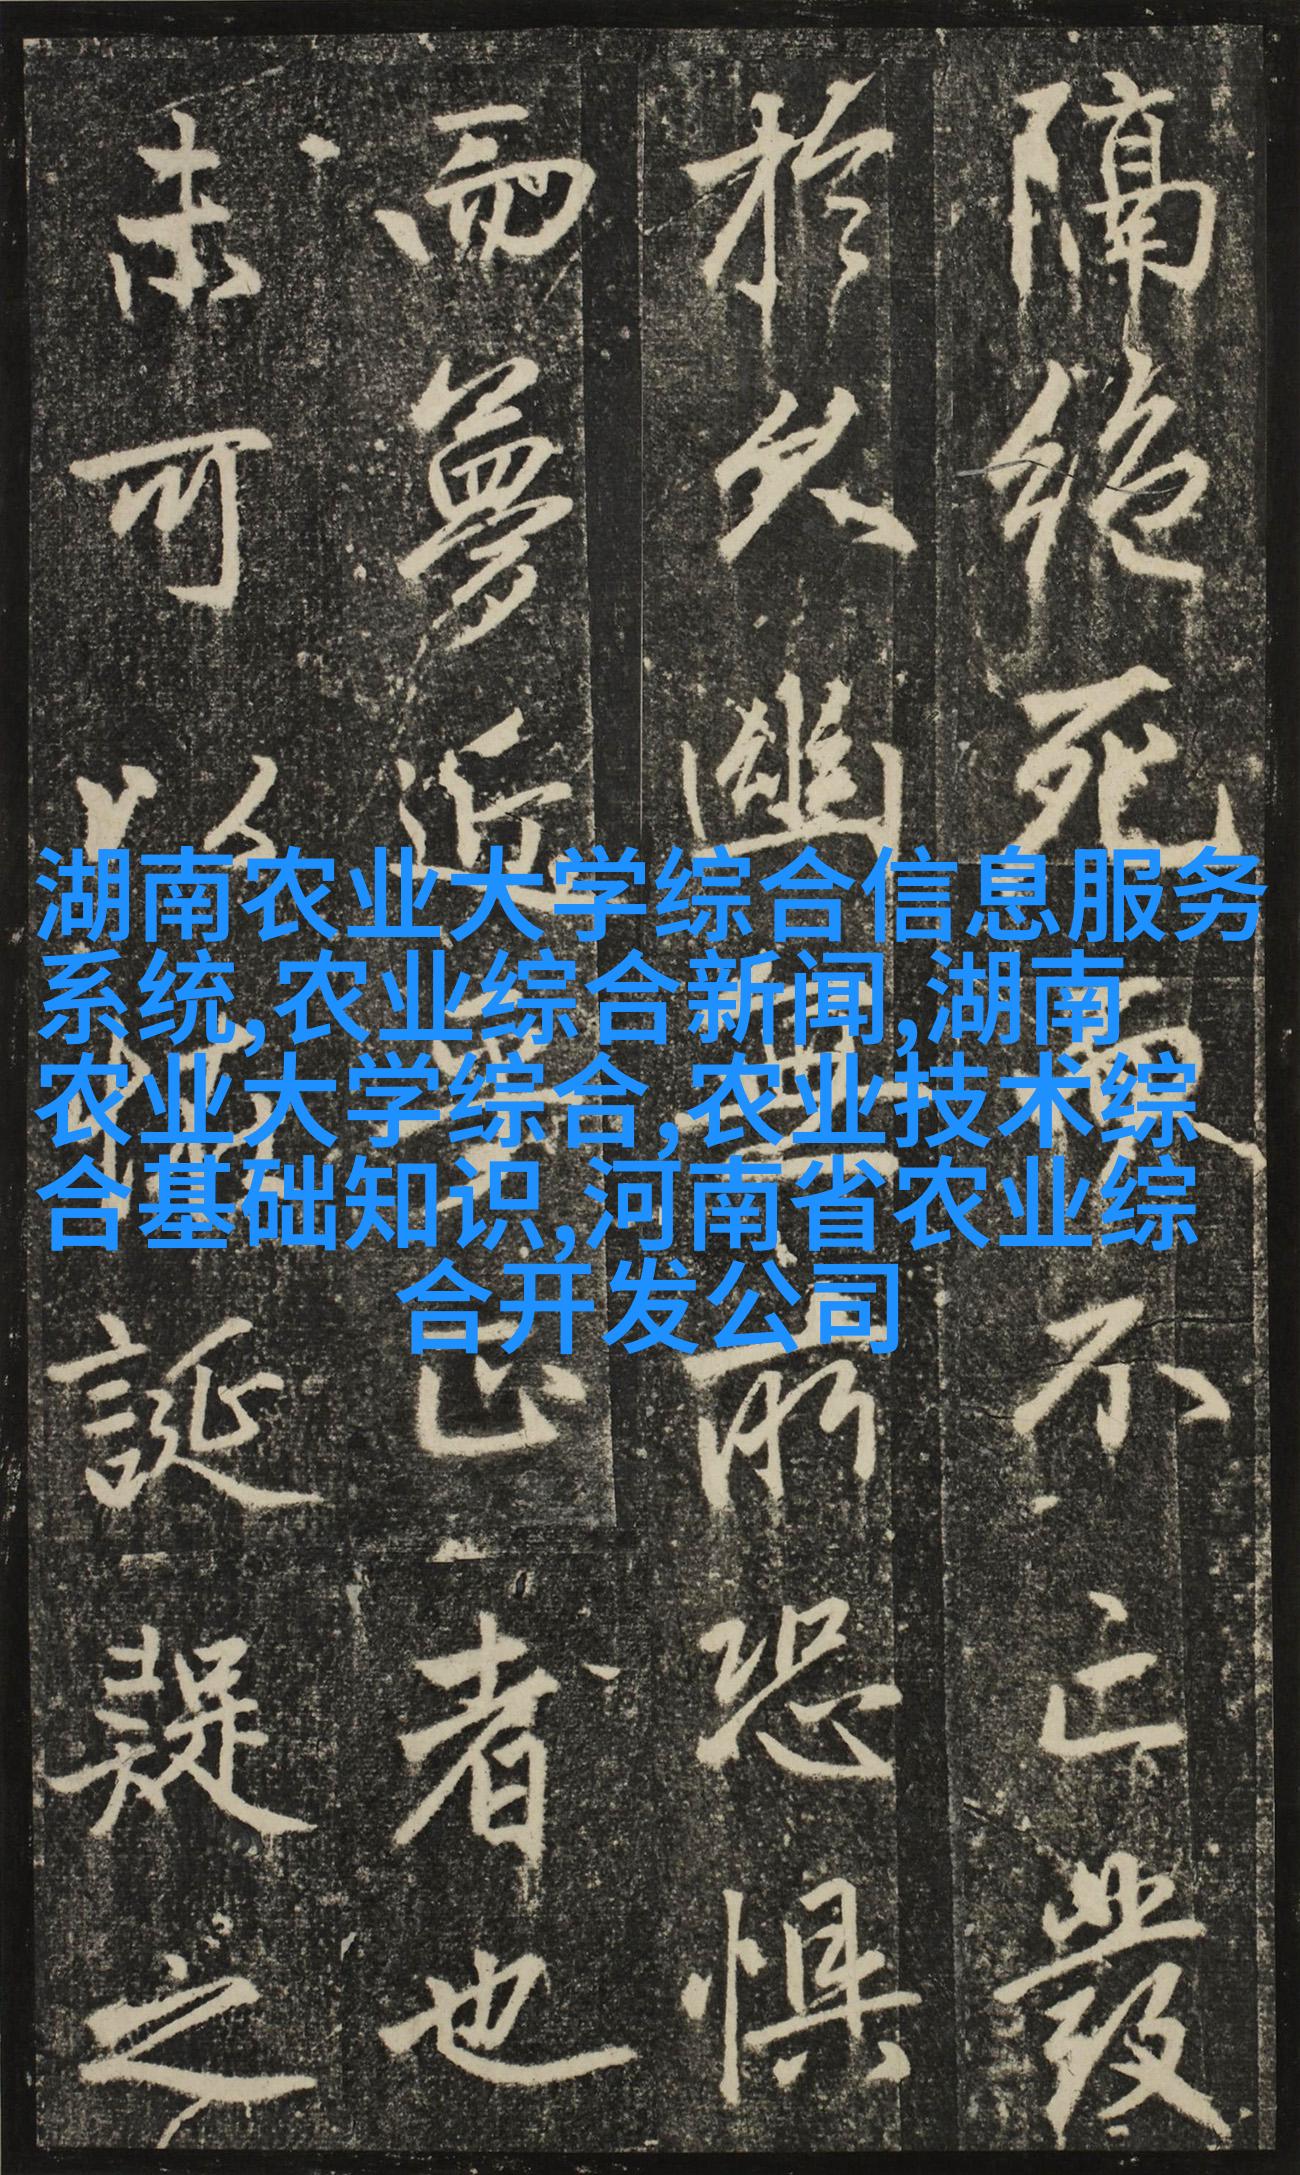 隔絶死不亡發
於久幽無所恐懼
而夢近正者也
未可以誕疑之
湖南农业大学综合信息服务
系统,农业综合新闻,湖南
农业大学综合,农业技术综
合基础知识,河南省农业综
合开发公司